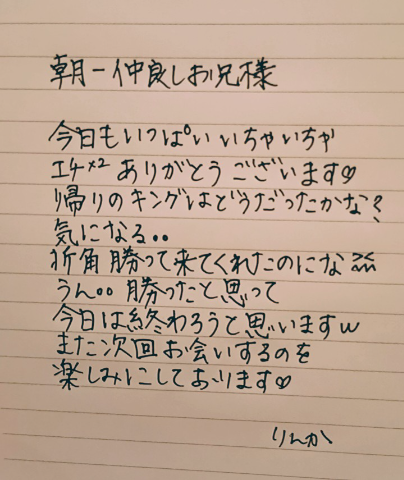 朝一仲良しお兄様
今日もいっぱいいちゃいちゃ
エチ×2 ありがとうございます♡
帰りのキングはどうだったかな?
気になる。。
折角勝って来てくれたのにな
うん。。勝ったと思って
今日は終わろうと思いますw
また次回お会いするのを
楽しみにしております♡
りんか